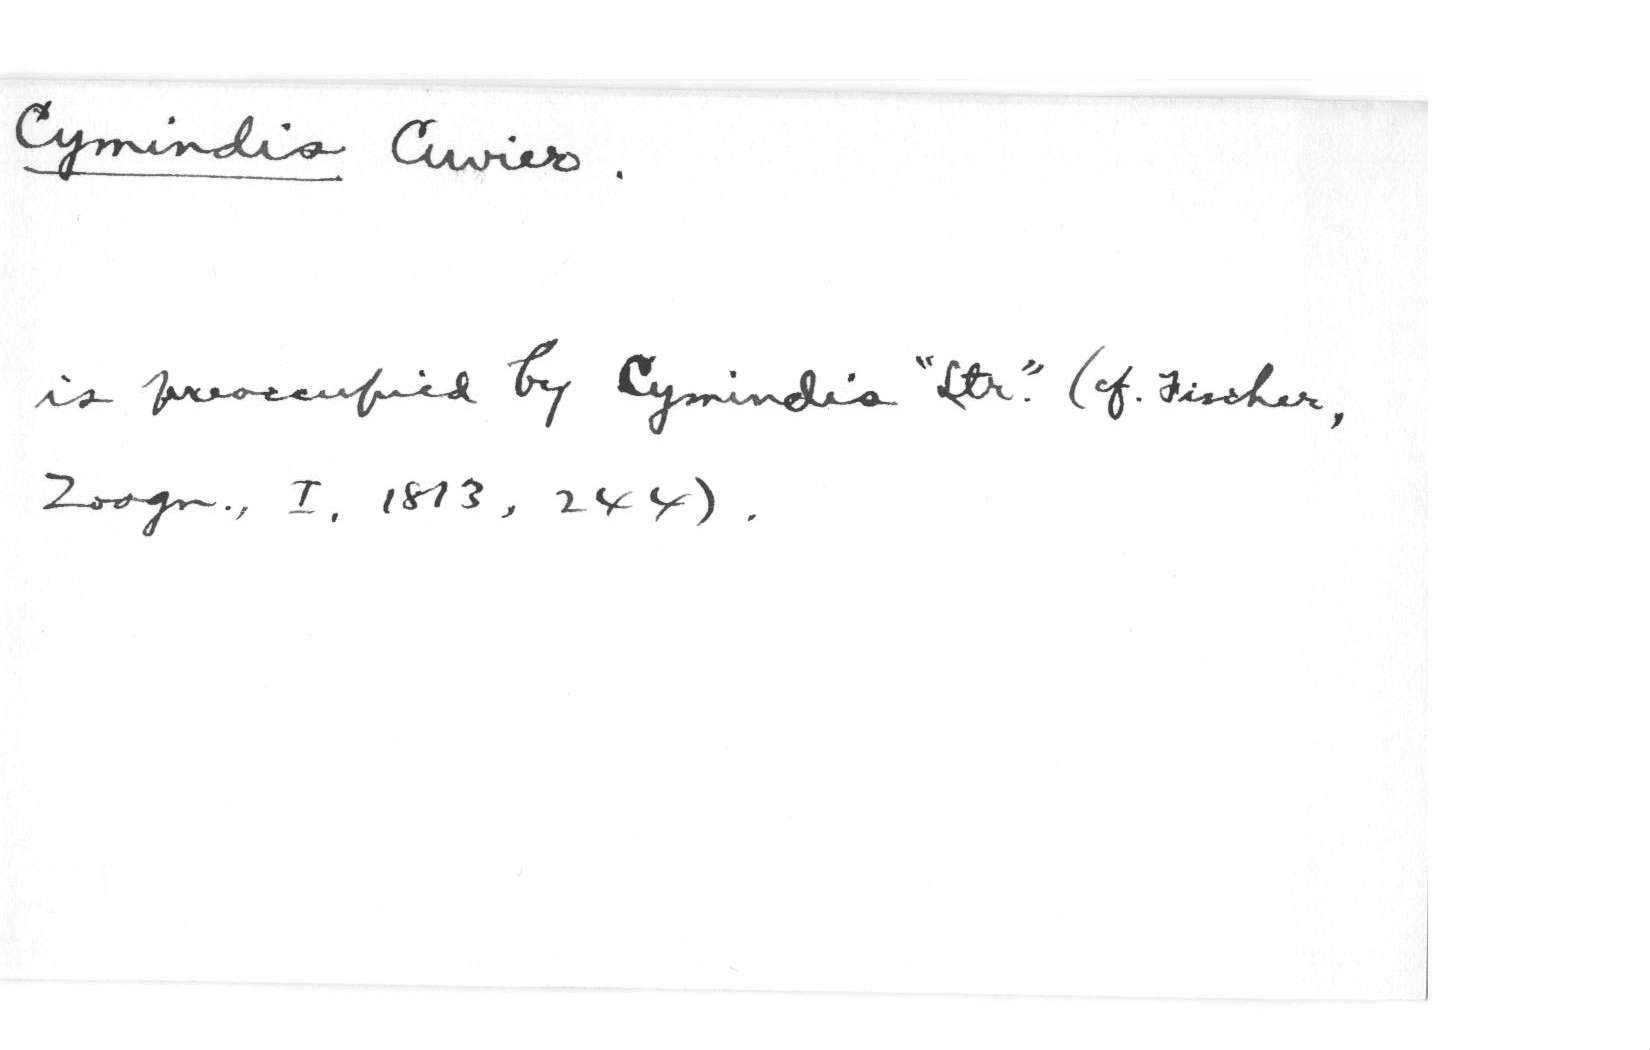 Cymindis Cuvier.
is preoccupied by Cymindis "Ltr." (cf. Fischer,
Zoogn., I, 1813, 244).